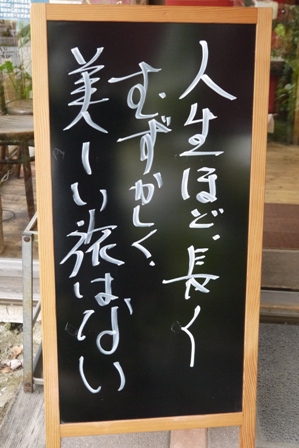 人生ほど、長く
むずかしく、
美しい旅はない